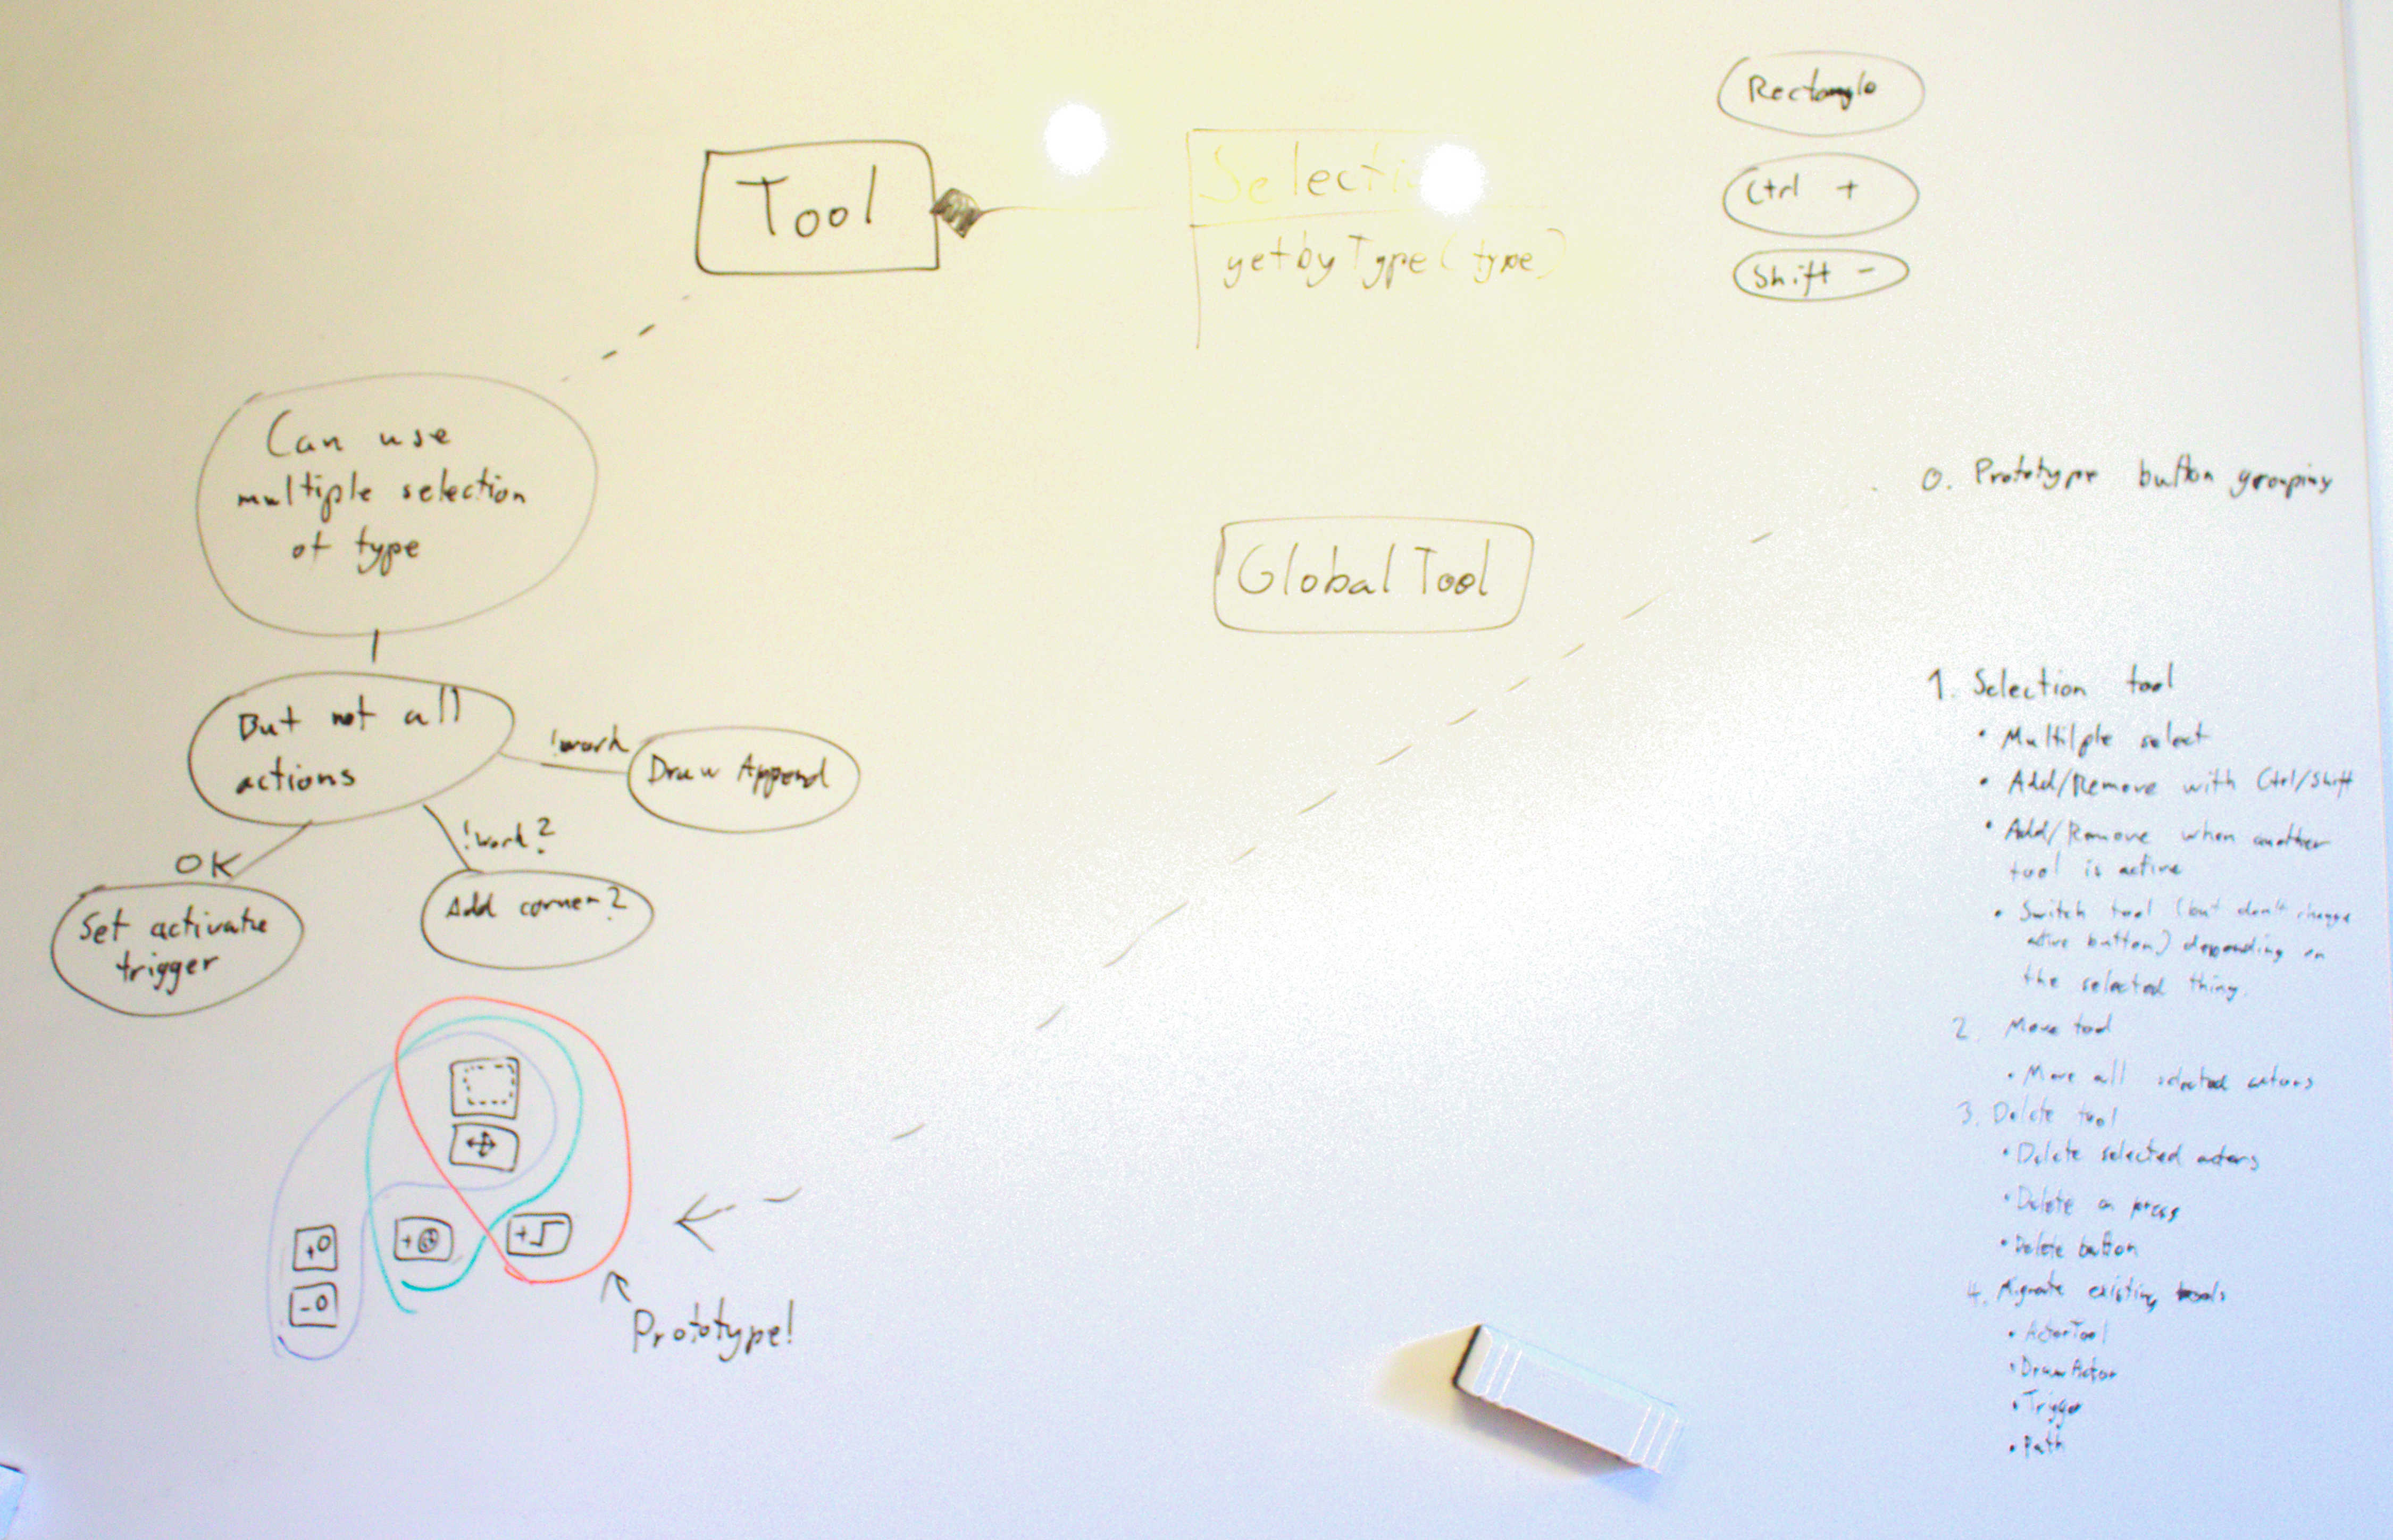 Tool
Selecti
getbyType(type)
Rectangle
Ctrl +
Shift -
Can use
multiple selection
of type
But not all
actions
!work
Draw Append
!work?
Add corner?
OK
Set activate
trigger
Global Tool
+0
-0
+
+
Prototype!
0. Prototype button grouping
1. Selection tool
• Multilple select
• Add/Remove with Ctrl/Shift
• Add/Remove when another
tool is active
• Switch tool (but don't change
active button) depending on
the selected thing.
2. Move tool
• Move all selected actors
3. Delete tool
• Delete selected actors
• Delete on press
• Delete button
4. Migrate existing tools
• ActorTool
• DrawActor
• Trigger
• Path